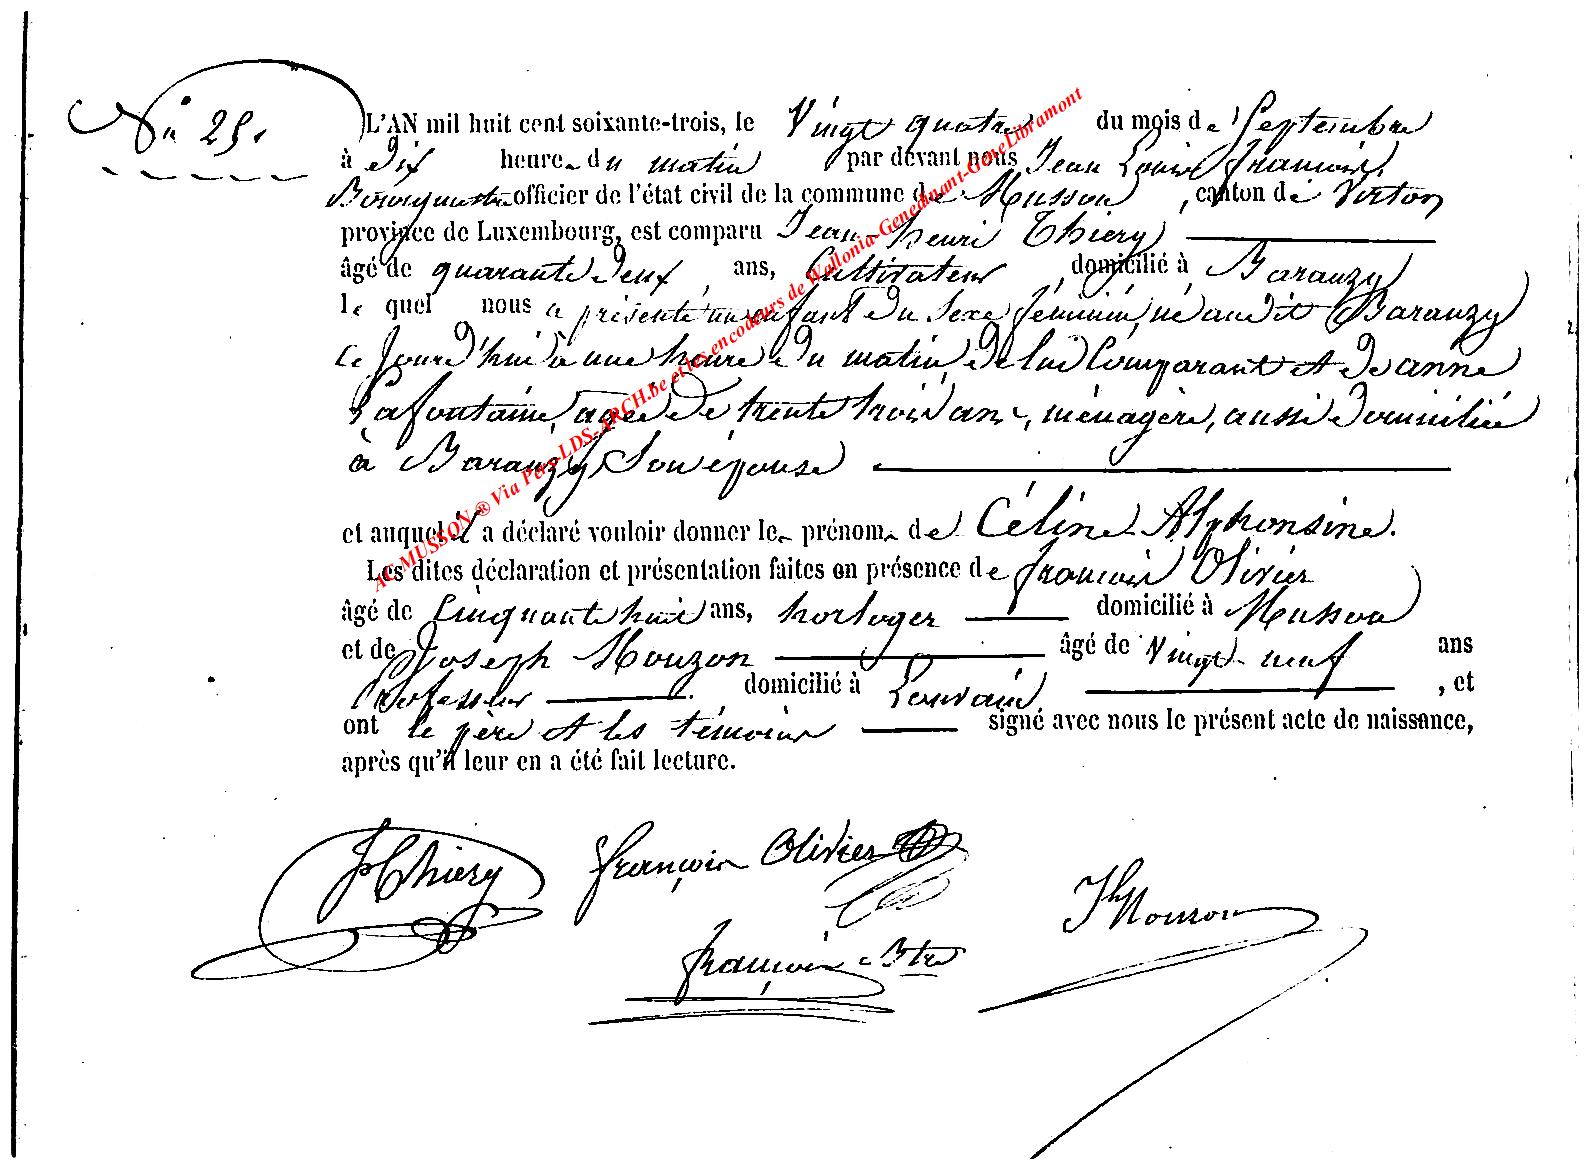 No 25.
L'AN mil huit cent soixante-trois, le Vingt quatre du mois de Septembre
à dix heures du matin par devant nous Jean Louis françois,
Bourgmestre officier de l'état civil de la commune de Musson, canton de Virton
province de Luxembourg, est comparu Jean-henri Thiery
âgé de quarante deux ans, Cultivateur, domicilié à Baranzy
le quel nous a présenté un enfant du sexe féminin, né audit Baranzy
ce jourd'hui à une heure du matin, de lui Comparant et de anne
Lafontaine, agée de trente trois ans, ménagère, aussi domiciliée
à Baranzy, Son épouse
et auquel il a déclaré vouloir donner les prénoms de Céline Alphonsine.
Les dites déclaration et présentation faites en présence de françois Olivier
âgé de Cinquante huit ans, horloger domicilié à Musson
et de Joseph Mouzon âgé de Vingt-neuf ans
Professeur domicilié à Louvain, et
ont le père et les témoins signé avec nous le présent acte de naissance,
après qu'il leur en a été fait lecture.
Thiery françois Olivier
Jh Mouzon
françois Btre
AC MUSSON ® Via Père LDS-ARCH.be et les encodeurs de Wallonia-Genedinant-GeneLibramont